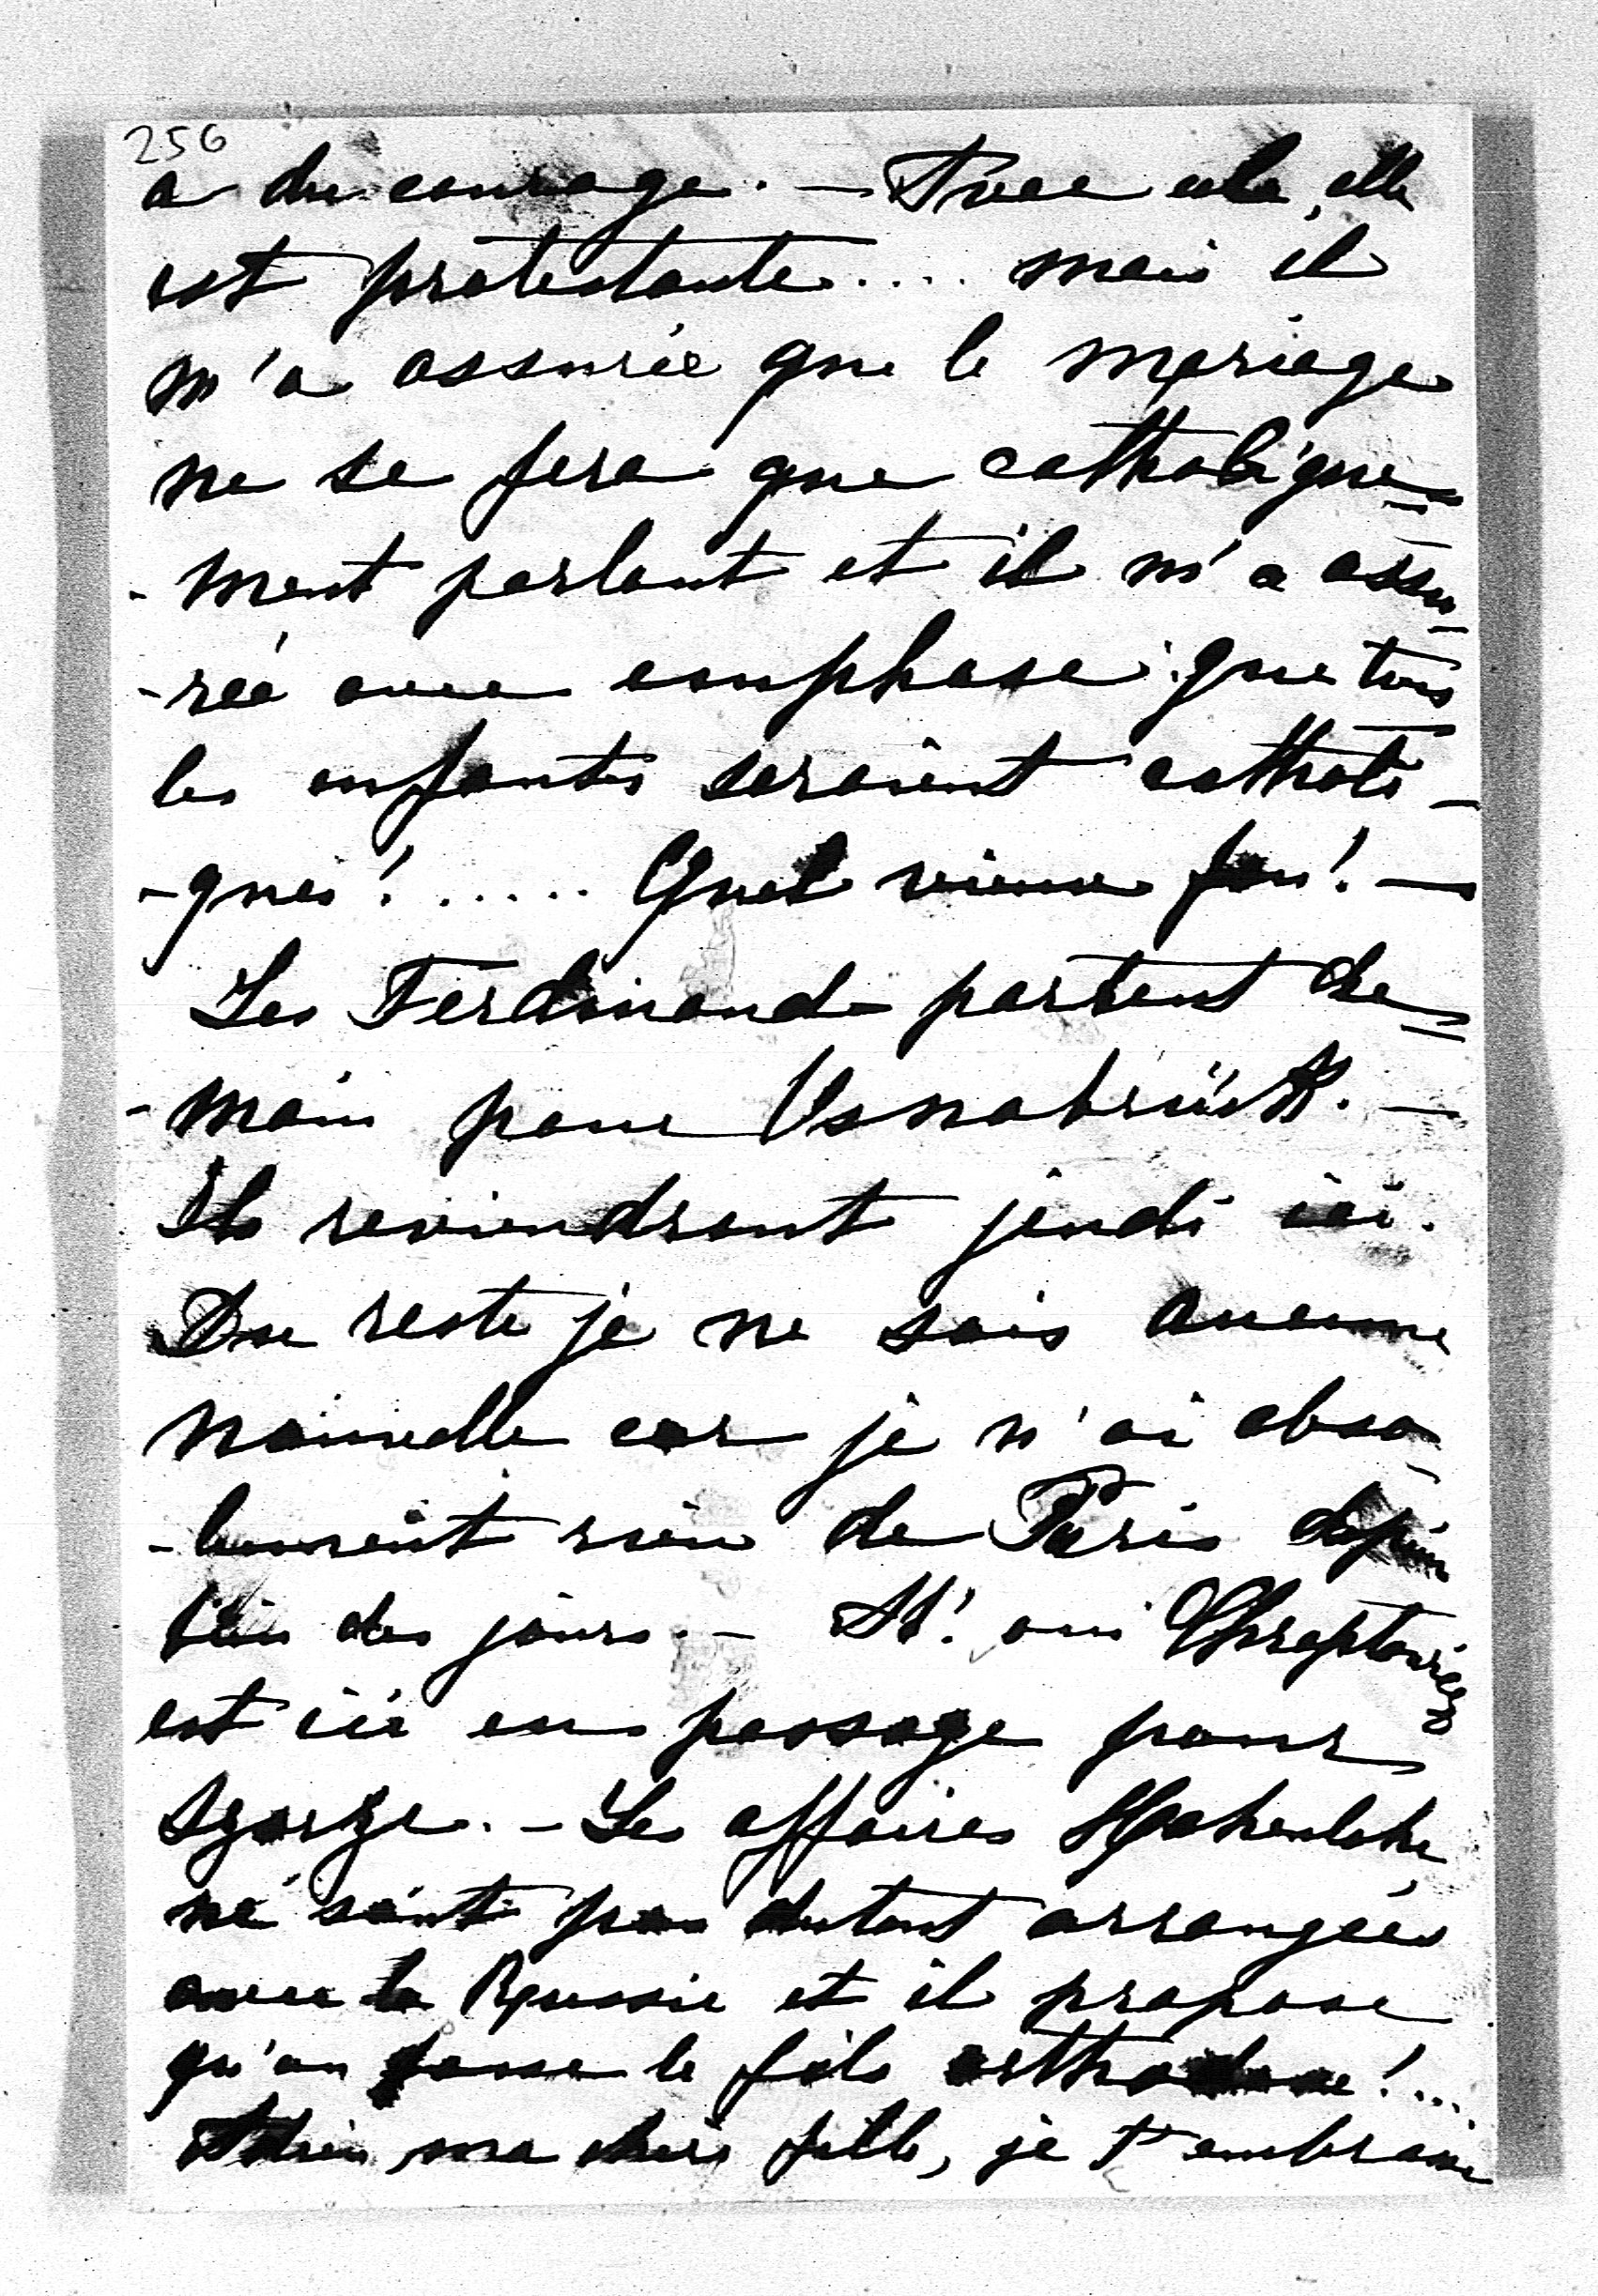 256
a du courage. — Avec cela, elle
est protestante.... mais il
m'a assurée que le mariage
ne se fera que catholique-
-ment parlant et il m'a assu-
-rée avec emphase que tous
les enfants seraient catholi-
-ques! ..... Quel vieux fou! —
Les Ferdinand partent de-
-main pour Osnabrück. —
Ils reviendront jeudi ici.
Du reste je ne sais aucune
nouvelle car je n'ai abso-
-lument rien de Paris depuis
bien des jours. — oui Chreptowicz
est ici en passage pour
Szorze. — Les affaires Hohenlohe
ne sont pas du tout arrangées
avec la Russie et il propose
qu'on fasse le fils orthodoxe!....
Adieu ma chère fille, je t'embrasse